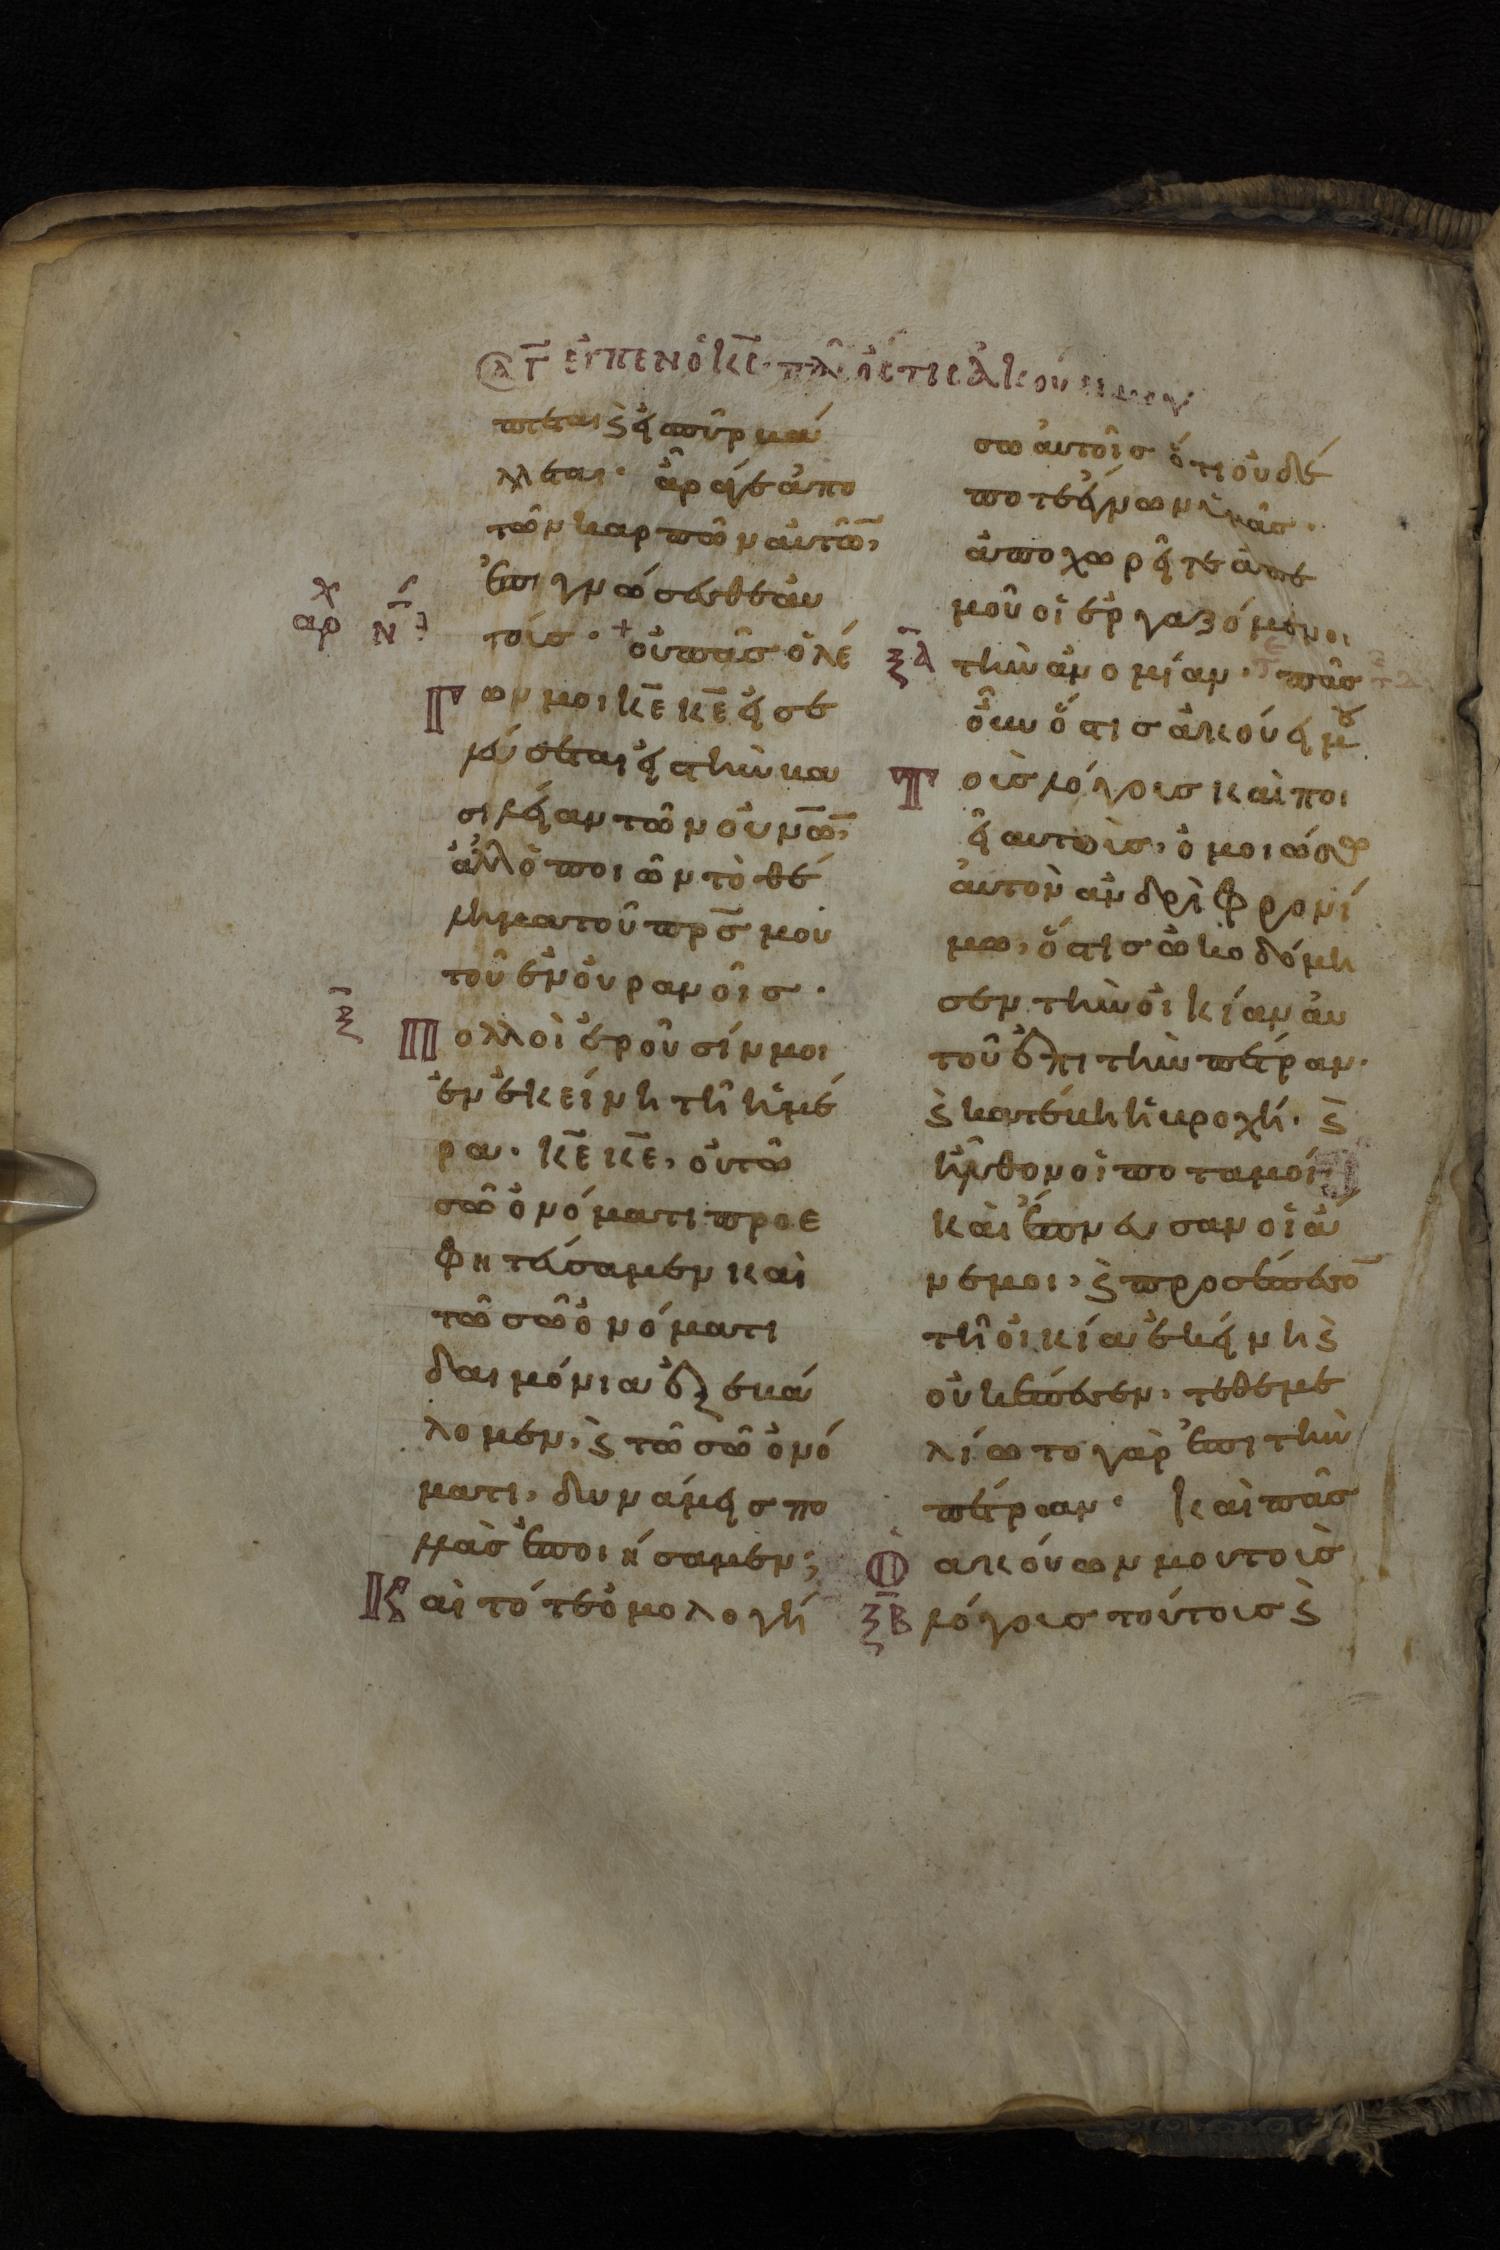 εἶπεν ὁ κ̅ε̅· πᾶς ὅστις ἀκούει μου
πτεται ϗ εἰς πῦρ βάλ
λεται· ἄρα γε ἀπὸ
τῶν καρπῶν αὐτῶ̅,
ἐπιγνώσεσθε αὐ
τούς· + οὐ πᾶς ὁ λέ
γων μοι κ̅ε̅ κ̅ε̅ εἰσε
λεύσεται εἰς τὴν βα
σιλείαν τῶν οὐν̅ῶ̅ν,
ἀλλ' ὁ ποιῶν τὸ θέ
λημα τοῦ πρ̅σ̅ μου
τοῦ ἐν οὐρανοῖς·
Πολλοὶ ἐροῦσίν μοι
ἐν ἐκείνη τῆ ἡμέ
ρα· κ̅ε̅ κ̅ε̅, οὐ τῶ
σῶ ὀνόματι προε
φητεύσαμεν καὶ
τῶ σῶ ὀνόματι
δαιμόνια ἐξεβά
λομεν, ϗ τῶ σῶ ὀνό
ματι, δυνάμεις πο
λλὰς ἐποιήσαμεν;
Καὶ τότε ὁμολογή
σω αὐτοῖς ὅτι οὐδέ
ποτε ἔγνων ὑμᾶς·
ἀποχωρεῖτε ἀπε
μοῦ οἱ ἐργαζόμενοι
ξ̅α̅ τὴν ἀνομίαν· πᾶς
οὖν ὅστις ἀκούει μου
Τοὺς λόγους καὶ ποι
εῖ αυτοὺς, ὁμοιώσω
αὐτὸν ἀνδρὶ φρονί
μω, ὅστις ὠκοδόμη
σεν τὴν οἰκίαν αὐ
τοῦ ἐπι τὴν πέτραν·
ϗ κατέβη ἡ βροχή· ϗ
ἦλθον οἱ ποταμοί·
καὶ ἔπνευσαν οἱ ἄ
νεμοι, ϗ προσέπεσο̅
τῆ οἰκία ἐκείνη ϗ
οὐκ ἔπεσεν, τεθεμε
λίωτο γὰρ ἐπὶ τὴν
πέτραν· Καὶ πᾶς
ὁ ἀκούων μου τοὺς
ξ̅β̅ λόγους τούτους ϗ